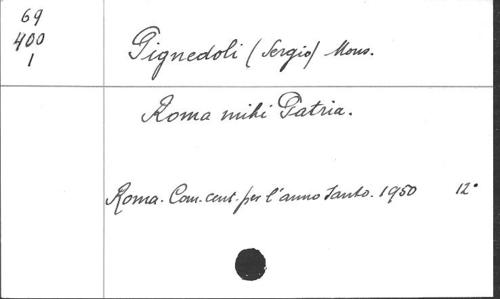 69
400
1
Pignedoli (Sergio) Mons.
Roma mihi Patria.
Roma. Com. cent. per l'anno Santo. 1950 12°